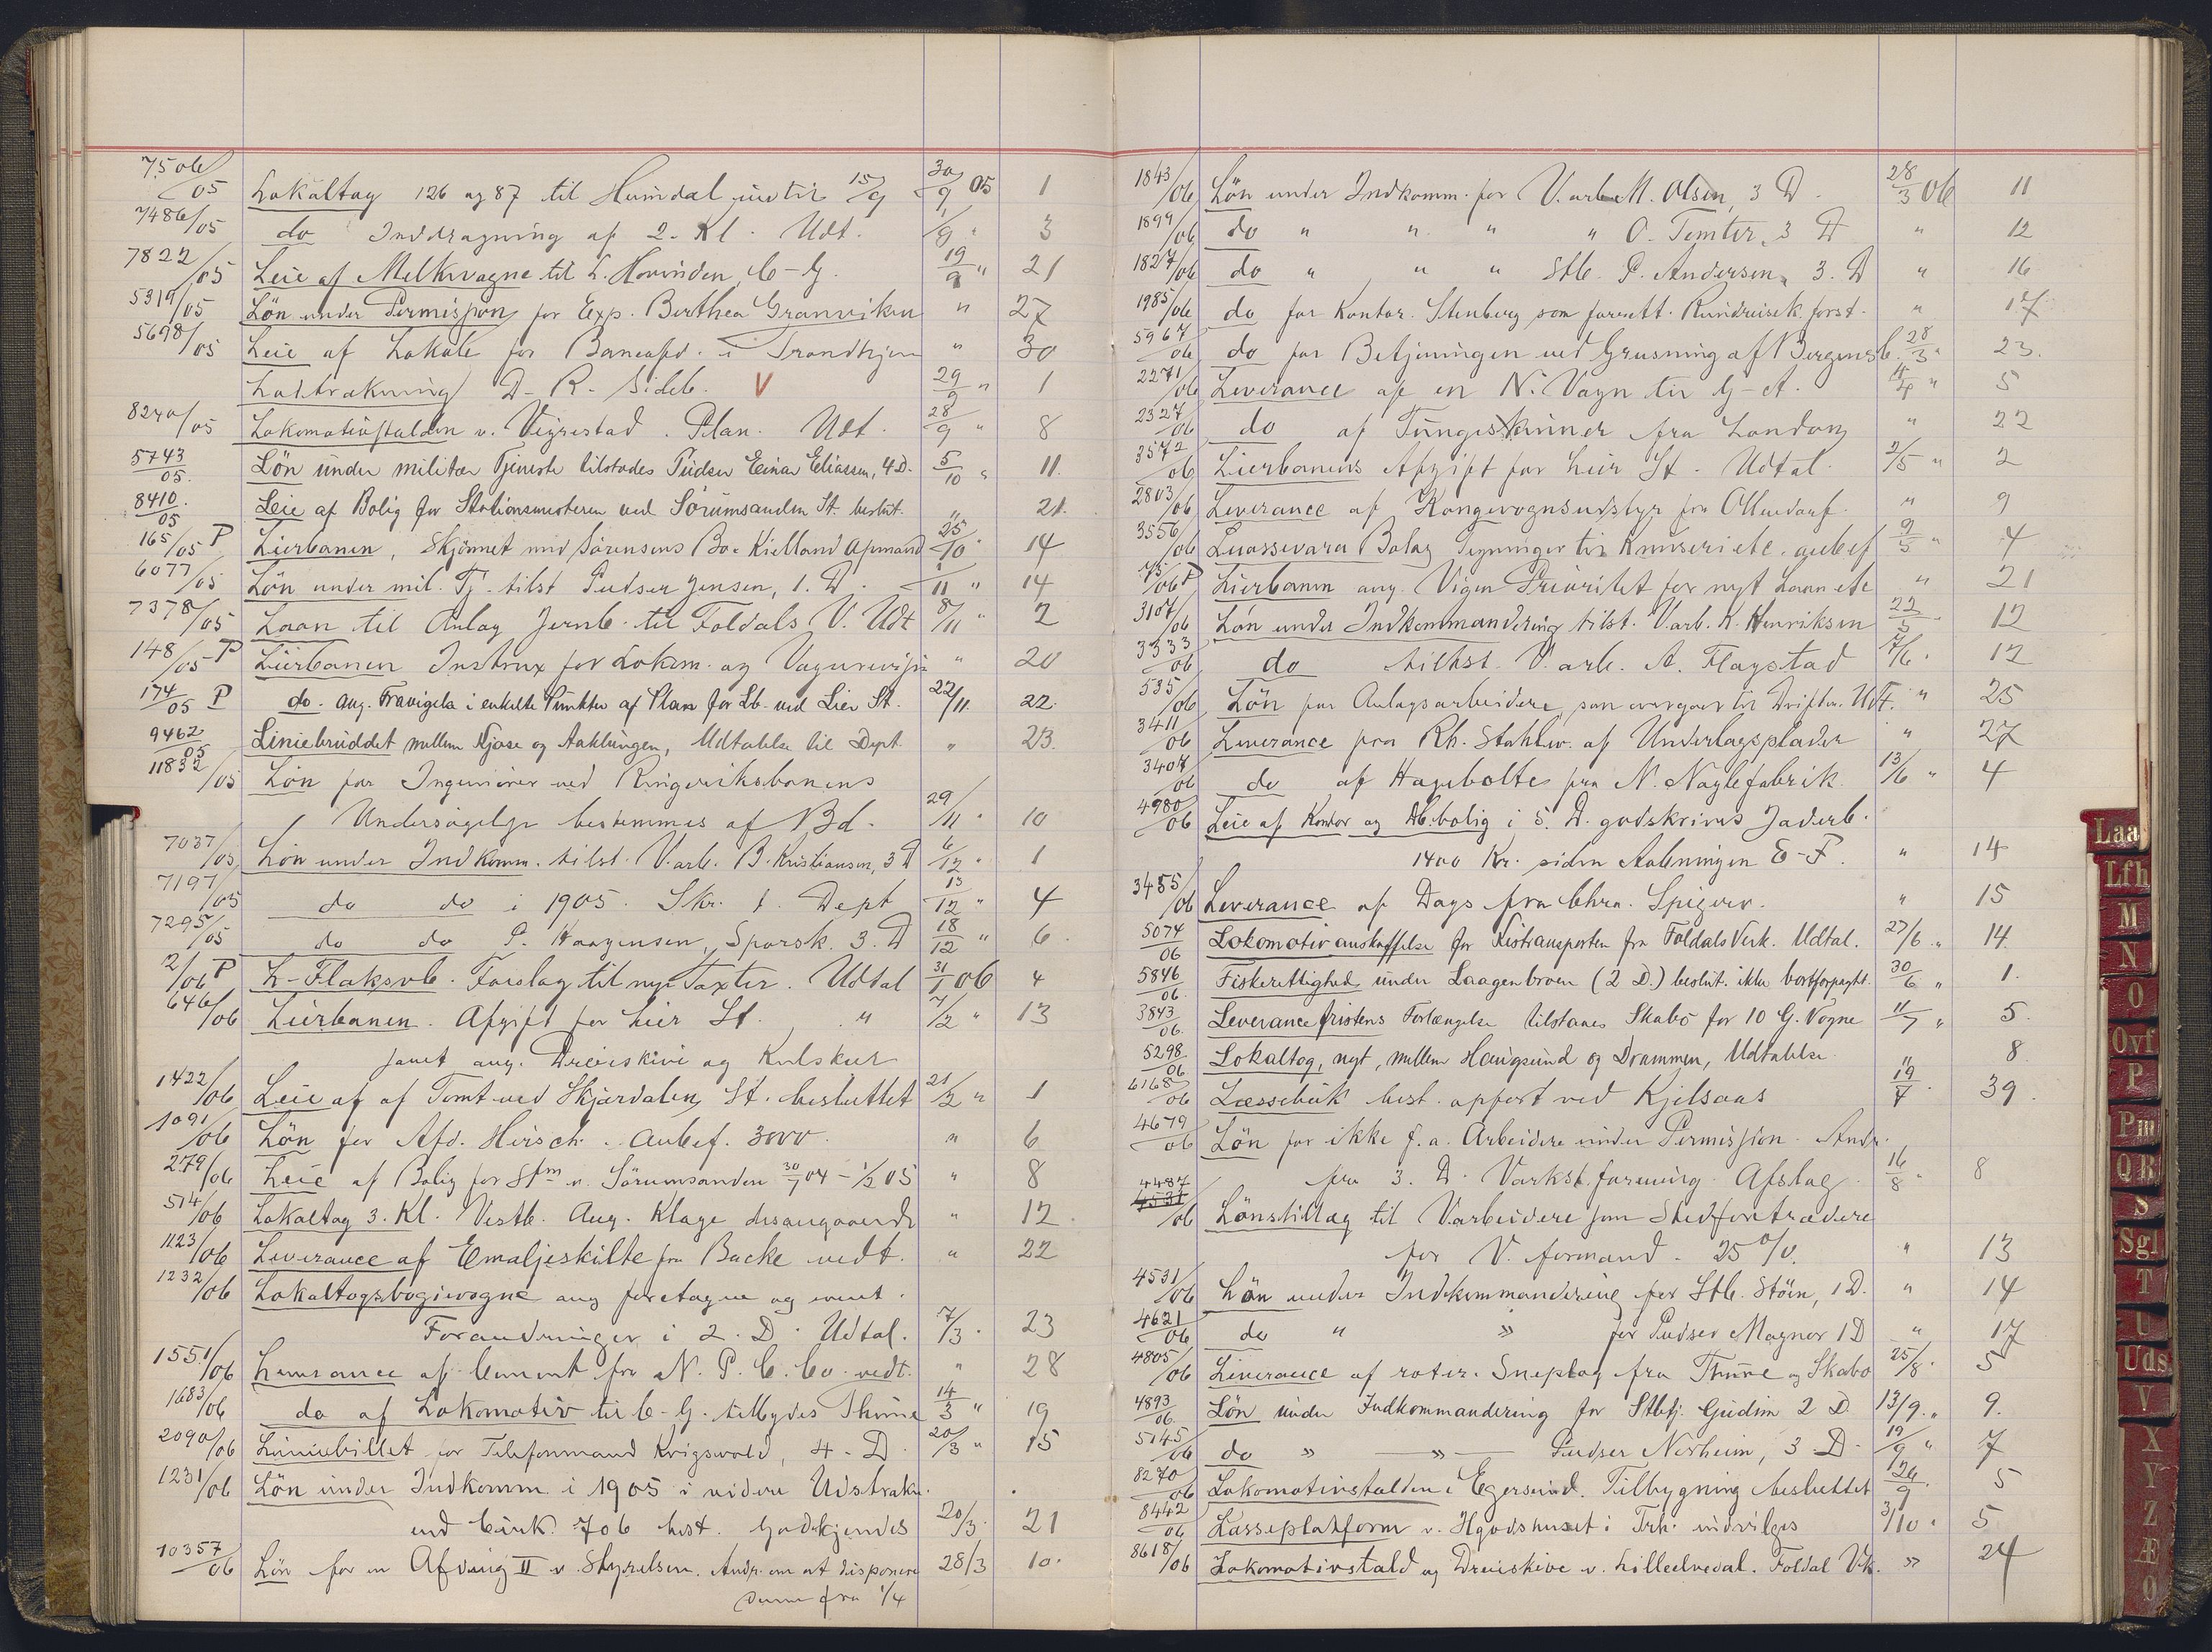 7506/05 Lokaltog 126 og 87 til Hurindal indtil 15/9 30/9 05 1
7486/05 do Inddragning af 2. Kl. Udt. /9 " 3
7822/05 Leie af Melkvogne til L. Hovinden, C-G. 19/9 " 21
5319/05 Lön under Permission for Exp. Berthea Granviken " 27
5698/05 Leie af Lokale for Baneafd. i Trondhjem " 30
D-R. Sideb. V 29/9 " 1
8240/05 Lokomotivstalden v. Vigrestad. Plan. Udt. 28/9 " 8
5743/05. Lön under militær Tjeneste tilstodes Pudser Einar Eliassen, 4 D. 5/10 " 11.
8410/05 Leie af Bolig for Stationsmesteren ved Sörumsanden St. beslut. " 21.
165/05 P Lierbanen, Skjönnet mod Sörensens Bo. Kielland Opmand 25/10 " 14
6077/05 Lön under mil. Tj. tilst Pudser Jensen, 1. D. /11 " 14
7378/05 Laan til Anlæg Jernb. til Foldals V. Udt 8/11 " 2
148/05 P Lierbanen Instrux for Lokom. og Vognrevisjon " 20
174/05 P do. ang. Fravigelse i enkelte Punkter af Plan for Lb. ved Lier St. 22/11. 22.
9462/05 Liniebruddet mellem Kjose og Aaklungen, Udtalelse til Dept. " 23.
11832/05 Lön for Ingeniörer ved Ringeriksbanens
Undersögelse bestemmes af Bd. 29/11 " 10
7037/05 Lön under Indkomm. tilst. V.arb. B. Kristiansen, 3 D 6/12 " 1
7197/05 do do i 1905. Skr. t. Dept 13/12 " 4
7295/05 do do P. Haagensen, Sporsk. 3. D 18/12 " 6.
2/06 P L-Flaksvb. Forslag til nye Taxter. Udtal 31/1 06 4
646/06 Lierbanen. Afgift for Lier St. " 7/2 " 13
samt ang. Dreieskive og Kulskur
1422/06 Leie af af Tomt ved Skjærdalen St. besluttet 21/2 " 1
1091/06 Lön for Afd. Hirsch. Anbef. 3000. " 6
279/06 Leie af Bolig for Stm v. Sörumsanden 30/7 04 - 1/2 05 " 8
514/06 Lokaltog 3. Kl. Vestb. Ang. Klage desangaaende " 12.
1123/06 Leverance af Emaljeskilte fra Backe vedt. " 22
1232/06 Lokaltogsbogievogne ang foretagne og event.
Forandringer i 2. D. Udtal. 7/3. 23
1551/06 Leverance af Cement fra N. P. C. Co. vedt. " 28
1683/06 do af Lokomotiv til C-G. tilbydes Thune 14/3 " 19
2090/06 Liniebillet for Telefonmand Krigsvold, 4. D. 20/3 " 15
1231/06 Lön under Indkomm i 1905 i videre Udstrækn.
end Cirk. 706 best. Godkjendes 20/3. 21
10357/06 Lön for en Afding II v. Styrelsen. Andr. om at disponere 28/3 10.
denne fra 1/4
1843/06 Lön under Indkomm. for V.arb M. Olsen, 3 D. 28/3 06 11
1899/06 do " " " " O. Temter, 3 D " 12
1827/06 do " " " Stb. P. Andersen, 3. D " 16
1985/06 do for Kontor. Stenberg som forsett. Rundreisek. forst. " 17
5967/06 do for Betjeningen ved Grusning af Bergensb. 28/3 " 23.
2271/06 Leverance af en N. Vogn til G-A. /4 " 5
2327/06 do af Tungeskinner fra London " 22
3572/06 Lierbanens Afgift for Lier St. Udtal. 2/5 " 2
2803/06 Leverance af Kongevognsudstyr fra Ollendorf. " 9
3556/06 Luossavara Bolag Tegninger til Knuseri etc. anbef 9/5 " 4
75/06 P Lierbanen ang. Vigen Prioritet for nyt Laan etc " 21
3107/06 Lön under Indkommandering tilst. V.arb. K. Henriksen 22/5 12
3333/06 do tilkst. V. arb. A. Flagstad 7/6. 12
535/06 Lön for Anlægsarbeidere, som overgaar til Driften. Udt. " 25
3411/06 Leverance fra Rh. Stahlw. af Underlagsplader " 27
3407/06 do af Hagebolte fra N. Naglefabrik. 13/6 " 4
4980/06 Leie af Kontor og Db.bolig i 5. D. godskrives Jæderb.
1400 Kr. siden Aabningen E-F. " 14
3455/06 Leverance af Dogs fra Chra. Spigerv. " 15
5074/06 Lokomotivanskaffelse for Kistransporten fra Foldals Verk. Udtal. 27/6 " 14.
5846/06. Fiskerettighed under Laagenbroen (2 D.) beslut. ikke bortforpagtet 30/6 " 1.
3843/06. Leverancefristens Forlængelse tilstaaes Skabo for 10 G. Vogne 11/7 " 5.
5298/06 Lokaltog, nyt, mellem Hougsund og Drammen, Udtalelse. " 8.
6168/06 Læssebuk best. opfört ved Kjelsaas 19/7. 39.
4679/06 Lön for ikke f. a. Arbeidere under Permission. Andr.
fra 3. D. Værkst. forening. Afslag. 16/8 " 8
4487 4531/06 Lönstillæg til V.arbeidere som Stedfortrædere
for V. formænd. 25 0/0. " 13
4531/06 Lön under Indkommandering for Stb. Stöen, 1 D. " 14
4621/06 do " " for Pudser Magnor 1 D " 17
4805/06 Leverance af roter. Sneplog fra Thune og Skabo 25/8. 5
4893/06. Lön under Indkommandering for Stbtj. Gudim 2 D. 13/9. " 9.
5145/06 do " — " — Pudser Norheim, 3 D. 19/9 " 7
8270/06 Lokomotivstalden i Egersund. Tilbygning besluttet 26/9 5
8442/06 Læsseplatform v. Hgodshuset i Trh. indvilges 3/10. 5
8618/06 Lokomotivstald og Dreieskive v. Lilleelvedal. Foldal Vk. " 24
Laa
Lfh
M
N
O
Ovf
P
Pm
QR
S
Sgl
T
U
Uds
V
X
Y
Z
Æ
Ø